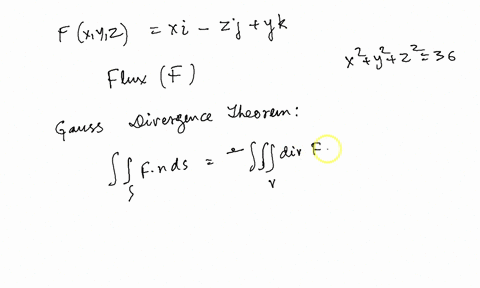 F(x,y,z) = xi - zj + yk
x²+y²+z²=36
Flux (F)
Gauss Divergence Theorem:
∬_S F.n ds = - ∭_V div F.